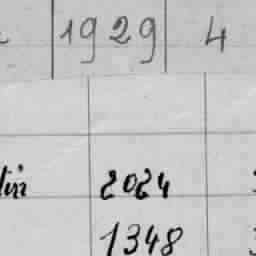 1929 4
2024
1348